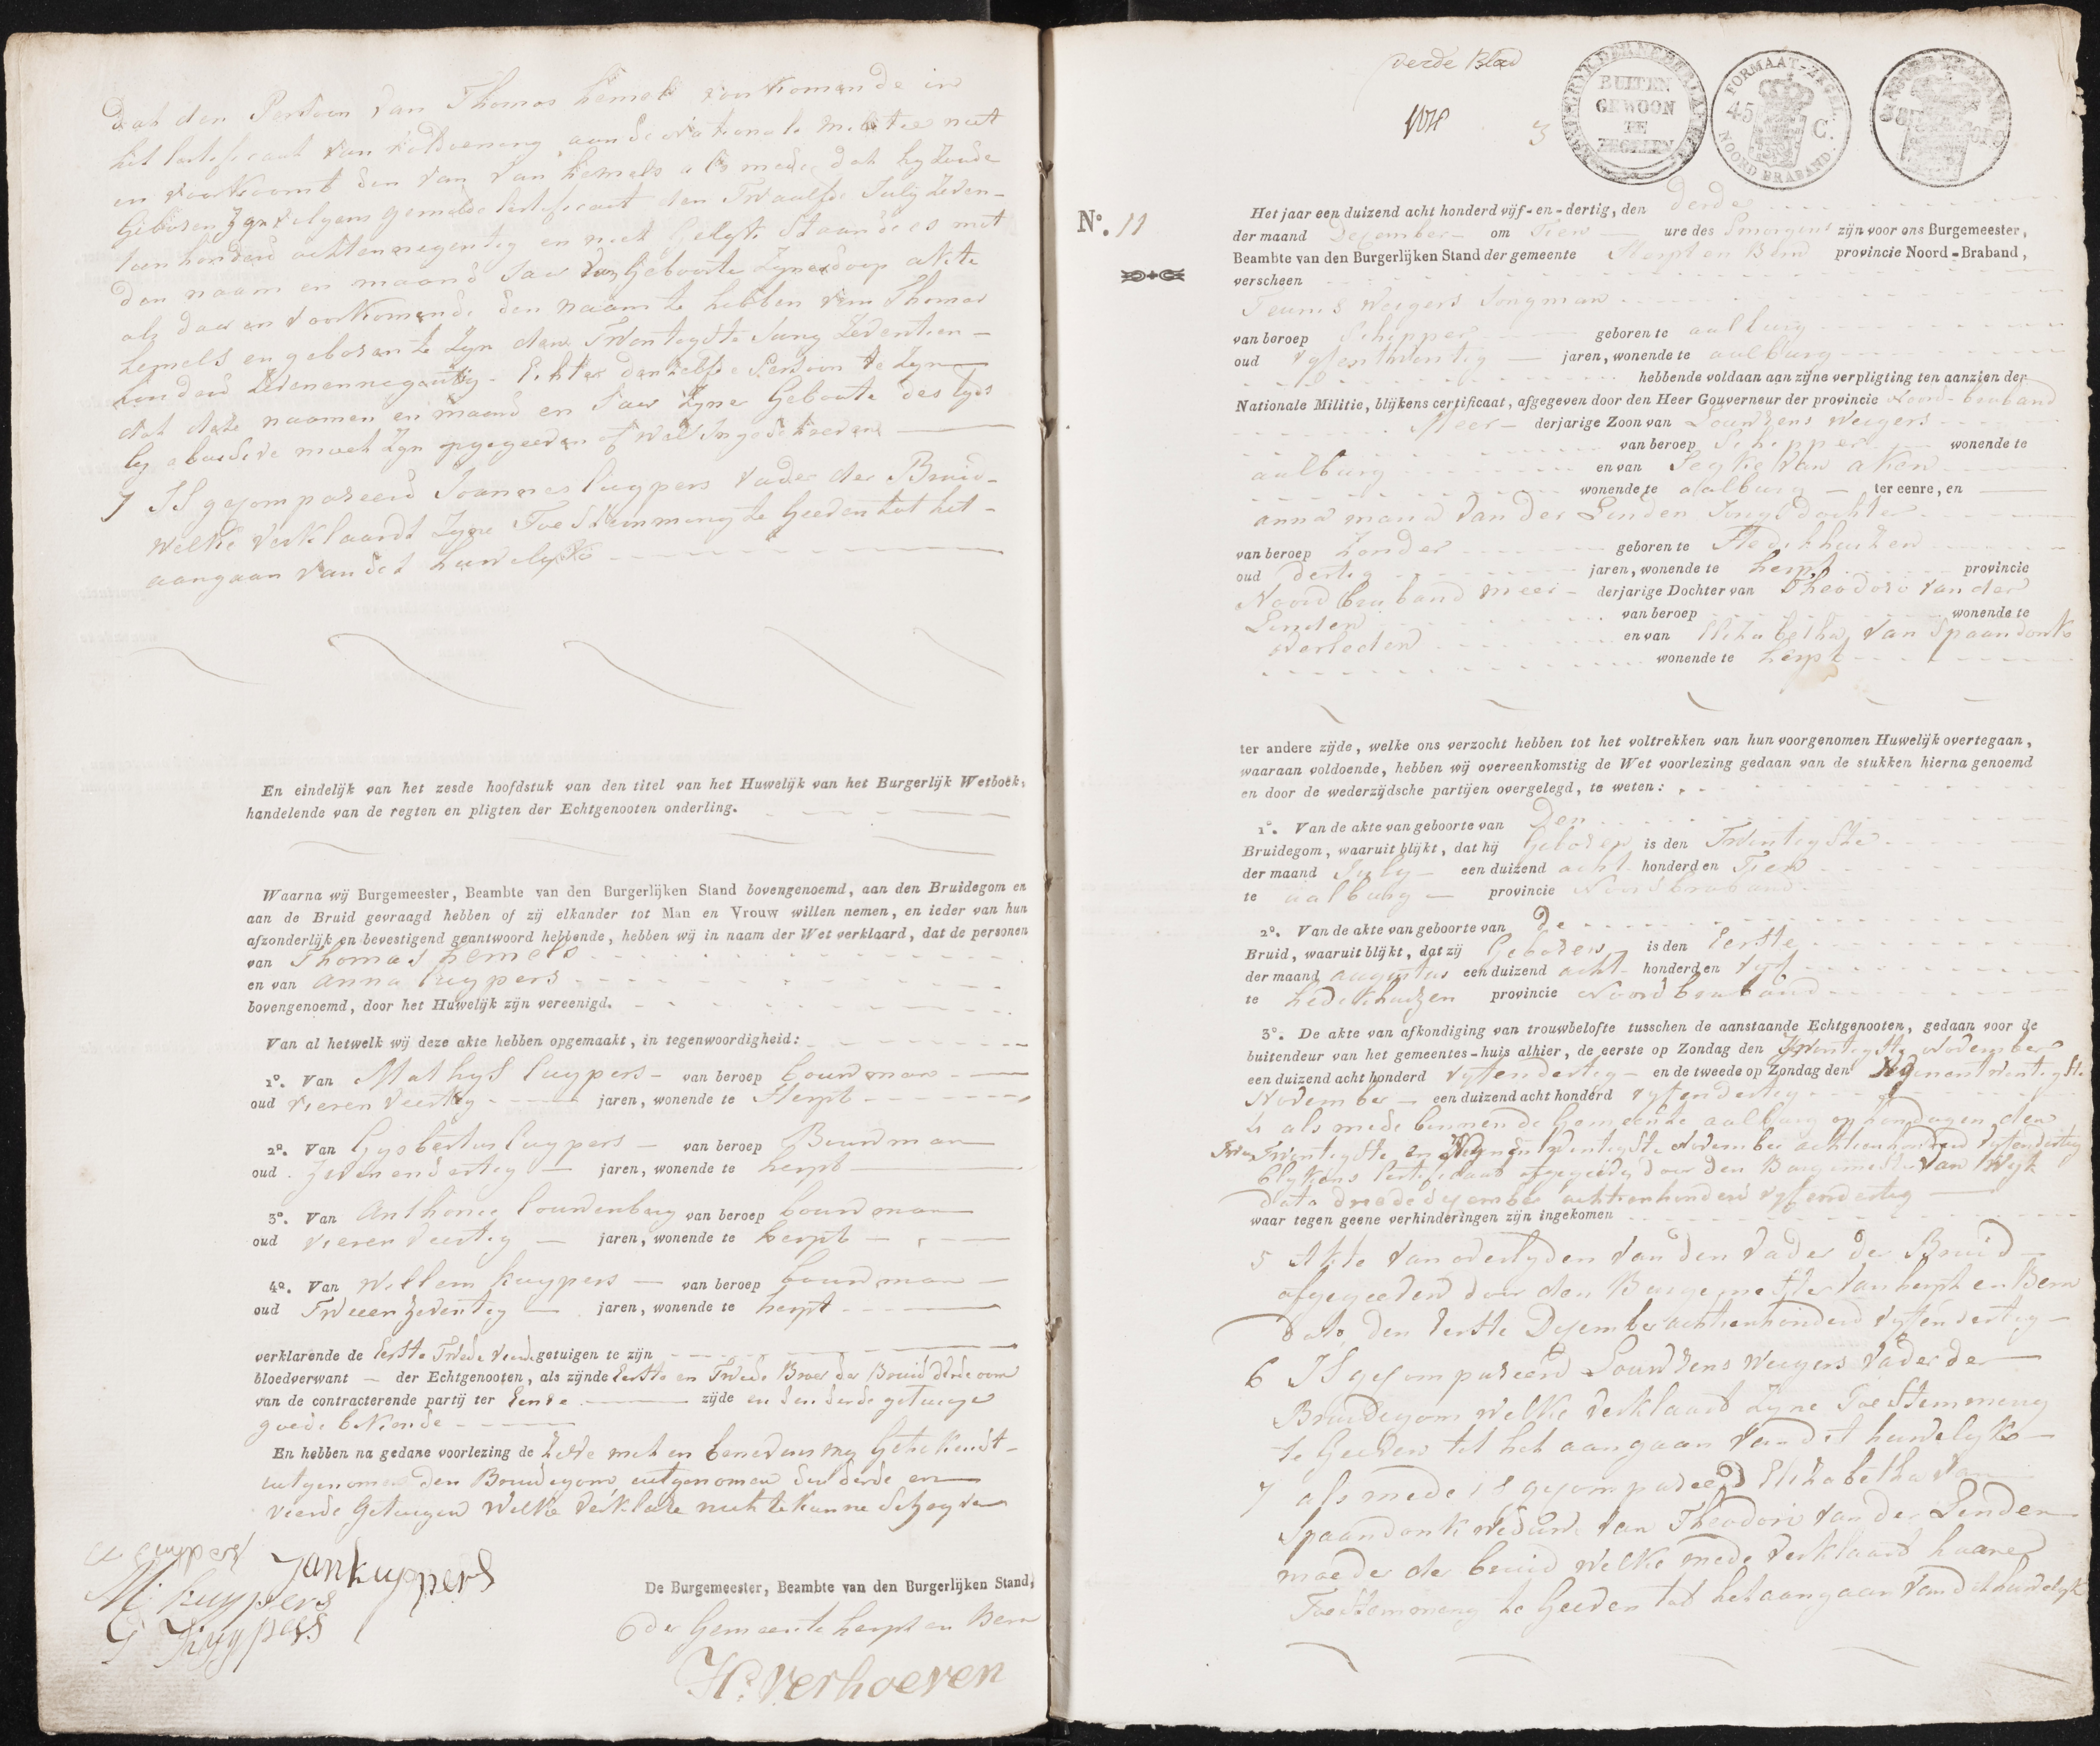 dat den Persoon van Thomas hemels voorkomende in
het Certeficaat van voldoening aan de nationale militie niet
en voorkoomt den van van hemels als mede dat hy zoude
Geboren zyn volgens gemelde Certeficaat den Twaalfde July Zeven-
tienhonderd achtennegentig en niet gelyk Staande is met
den naam en maand Jaar van Geboorte Zyner doop akte
als daar in voorkomende den naam te hebben van Thomas
hemels en geboren te Zyn den Twentigste Juny Zeventien-
honderd Zevenennegentig - Echter denzelfde Persoon te Zyn
dat deze naamen en maand en Jaar Zyner Geboorte destyds
by abusive moet Zyn opgegeeven of wel Ingeschreven
7 IS gecompareerd Joannes Cuypers Vader der Bruid-
welke verklaardt Zyne Toestemming te Geeven tot het-
aangaan van dit huwelyk
En eindelijk van het zesde hoofdstuk van den titel van het Huwelijk van het Burgerlijk Wetboek,
handelende van de regten en pligten der Echtgenooten onderling.
Waarna wij Burgemeester, Beambte van den Burgerlijken Stand bovengenoemd, aan den Bruidegom en
aan de Bruid gevraagd hebben of zij elkander tot Man en Vrouw willen nemen, en ieder van hun
afzonderlijk en bevestigend geantwoord hebbende, hebben wij in naam der Wet verklaard, dat de personen
van Thomas hemels
en van anna Cuypers
bovengenoemd, door het Huwelijk zijn vereenigd.
Van al hetwelk wij deze akte hebben opgemaakt, in tegenwoordigheid:
1º. Van Mathys Cuypers - van beroep bouwman
oud vieren veertig jaren, wonende te Herpt
2º. Van Gysbertus Cuypers - van beroep Bouwman
oud Zevenendertig jaren, wonende te herpt
3º. Van Anthonie Couwenberg van beroep bouwman
oud vieren veertig jaren, wonende te herpt
4º. Van Willem kuypers van beroep bouwman
oud Tweeenzeventig jaren, wonende te herpt
verklarende de Eerste Twede vierde getuigen te zijn
bloedverwant - der Echtgenooten, als zijnde Eerste en Twede Broer der Bruid vierde oom
van de contracterende partij ter Eenre zijde en den derde getuige
goede bekende
En hebben na gedane voorlezing de Zelve met en benevens my Getekendt-
uitgenomen den Bruidegom uitgenomen den derde en
vierde Getuigen Welke verklare niet te kunne Schryven
A cuypers
Jan kuppers
M. kuypers
G Kuypers
De Burgemeester, Beambte van den Burgerlijken Stand,
der Gemeente herpt en Bern
H. Verhoeven
derde Blad
3
RYK DER NEDERLANDEN
BUITEN
GEWOON
TE
ZEGELEN
FORMAAT-ZEGEL
45 C.
NOORD BRABAND.
38
Nº. 11
Het jaar een duizend acht honderd vijf-en-dertig, den derde
der maand December om Tien ure des Smorgens zijn voor ons Burgemeester,
Beambte van den Burgerlijken Stand der gemeente Herpt en Bern provincie Noord-Braband,
verscheen
Teunis Weijers Jongman
van beroep Schipper geboren te aalburg
oud vyfentwentig jaren, wonende te aalburg
hebbende voldaan aan zijne verpligting ten aanzien der
Nationale Militie, blijkens certificaat, afgegeven door den Heer Gouverneur der provincie Noord-braband
Meer- derjarige Zoon van Louwrens Weijers
van beroep Schipper wonende te
aalburg en van Seyke van aken
wonende te aalburg ter eenre, en
anna maria van der Linden Jonge dochter
van beroep Zonder geboren te Hedikhuizen
oud dertig jaren, wonende te herpt provincie
Noord braband meer- derjarige Dochter van Theodore van der
Linden van beroep wonende te
overleden en van Elizabetha van Spaandonk
wonende te herpt
ter andere zijde, welke ons verzocht hebben tot het voltrekken van hun voorgenomen Huwelijk overtegaan,
waaraan voldoende, hebben wij overeenkomstig de Wet voorlezing gedaan van de stukken hierna genoemd
en door de wederzijdsche partijen overgelegd, te weten:
1º. Van de akte van geboorte van Den
Bruidegom, waaruit blijkt, dat hij Geboren is den Twintigste
der maand July een duizend acht honderd en Tien
te aalburg provincie Noordbraband
2º. Van de akte van geboorte van De
Bruid, waaruit blijkt, dat zij Geboren is den Eerste
der maand augustus een duizend acht honderd en vyf
te hedikhuizen provincie Noordbraband
3º. De akte van afkondiging van trouwbelofte tusschen de aanstaande Echtgenooten, gedaan voor de
buitendeur van het gemeentes-huis alhier, de eerste op Zondag den Twentigste November
een duizend acht honderd vyfendertig en de tweede op Zondag den Negenentwintigste
November een duizend acht honderd vyfendertig
4 als mede binnen de Gemeente aalburg op Zondagen den
Twentigste en Negenentwentigste November achtienhonderd vyfendertig
blykens Certeficaat afgegeeven door den Burgemeester van Wijk
dato drie december achttienhonderd vyfendertig
waar tegen geene verhinderingen zijn ingekomen
5 Akte van overlyden van den Vader der Bruid
afgegeeven door den Burgemeester van herpt en Bern
dato den Eerste December achtienhonderd vyfendertig
6 IS gecompareerd Louwrens Weijers Vader der
Bruidegom welke verklaart Zyne Toestemming
te Geeven tot het aangaan van dit huwelyk
7 als mede is gecompareerd Elizabetha van
Spaandonk weduwe van Theodore van der Linden
moeder der bruid welke mede verklaart haare
Toestemming te Geeven tot het aangaan van dit huwelyk